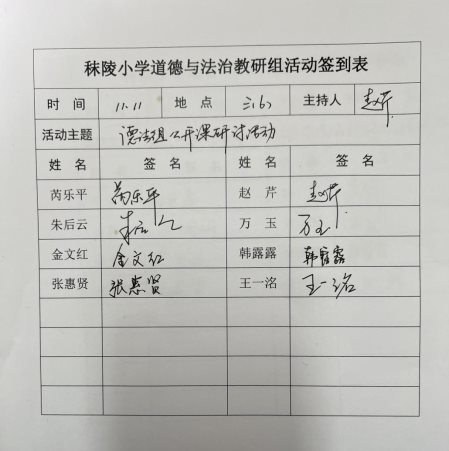 秣陵小学道德与法治教研组活动签到表
时 间 11.11 地 点 三(6) 主持人 赵芹
活动主题 德法组公开课研讨活动
姓 名 签 名 姓 名 签 名
芮乐平 芮乐平 赵 芹 赵芹
朱后云 朱后云 万 玉 万玉
金文红 金文红 韩露露 韩露露
张惠贤 张惠贤 王一洺 王一洺